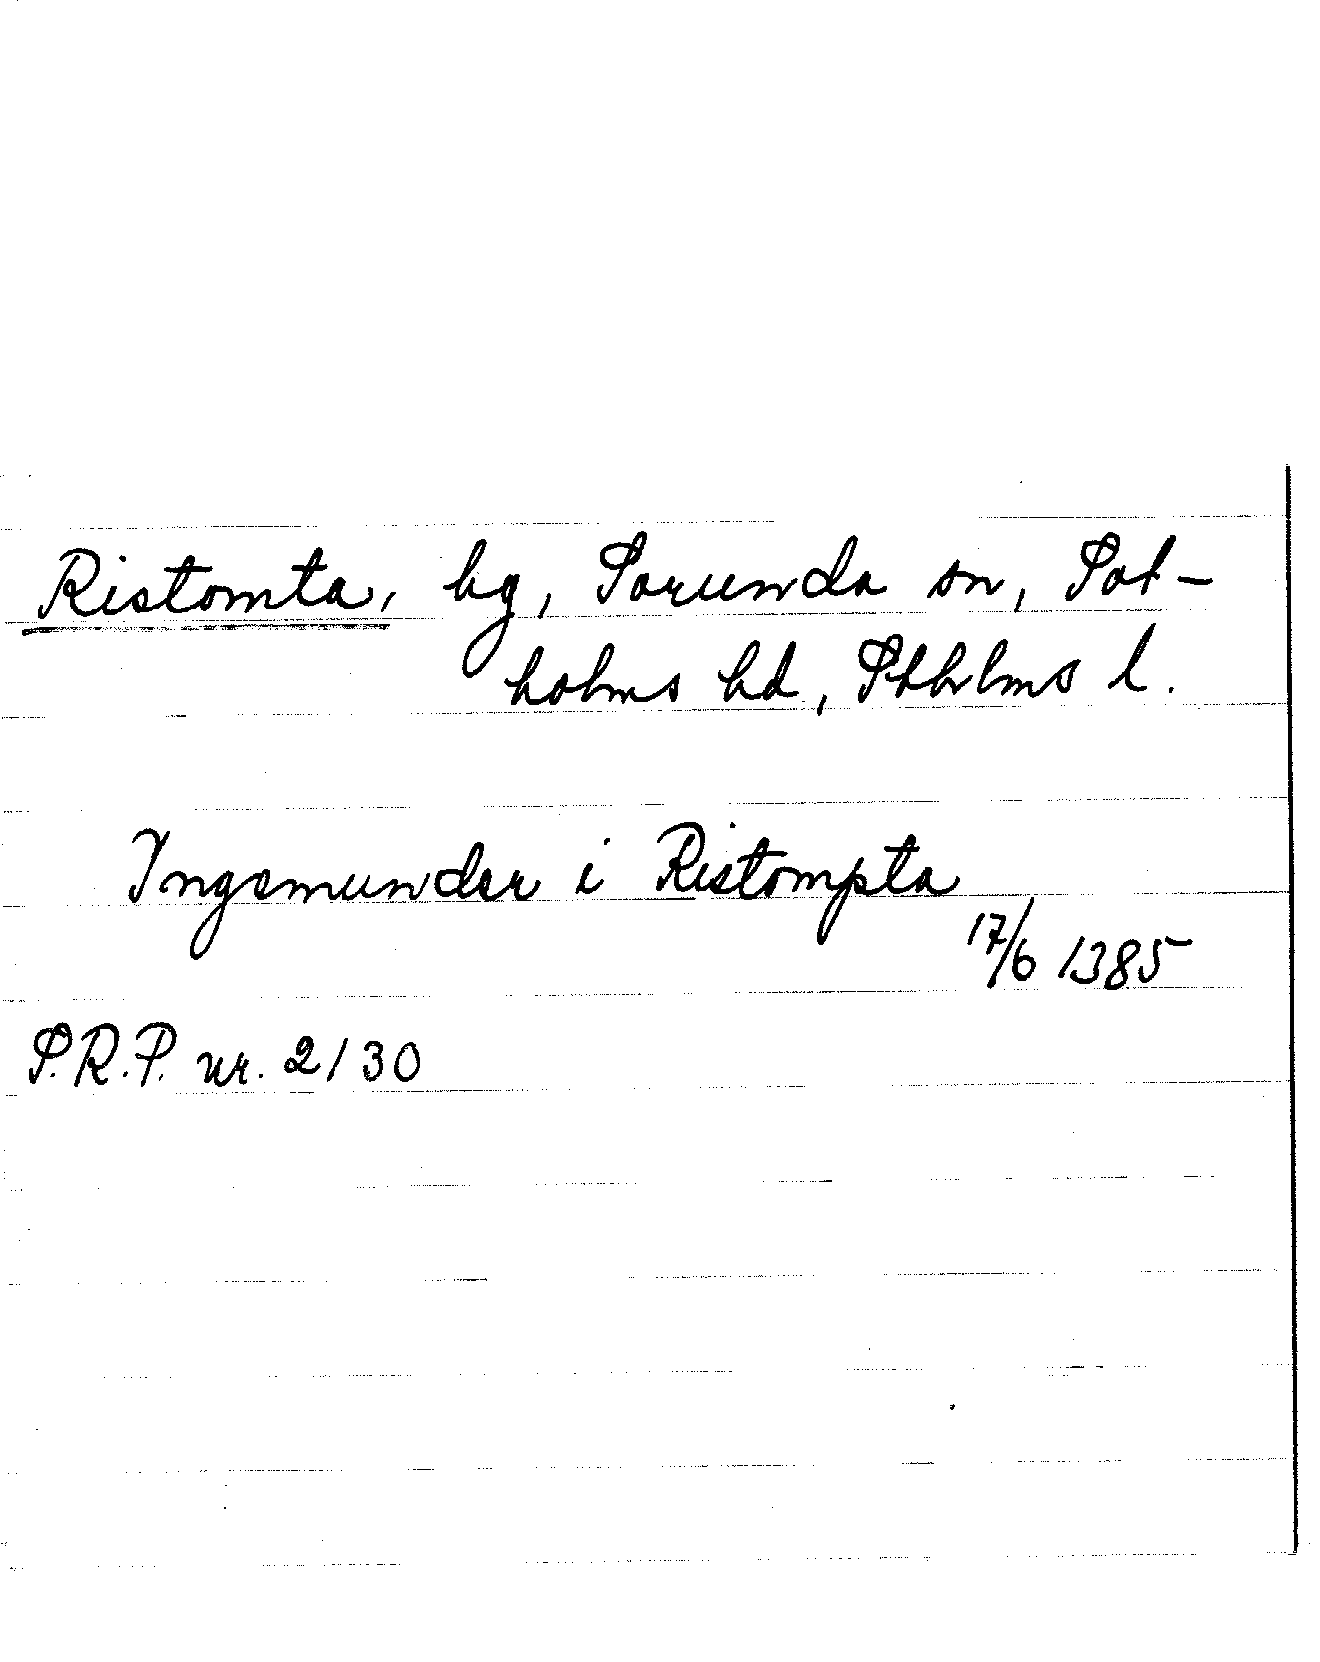 Ristomta, hg, Sorunda sn, Sot-
holms hd, Sthlms l.
Ingemunder i Ristompta
17/6 1385
S.R.P. nr. 2130